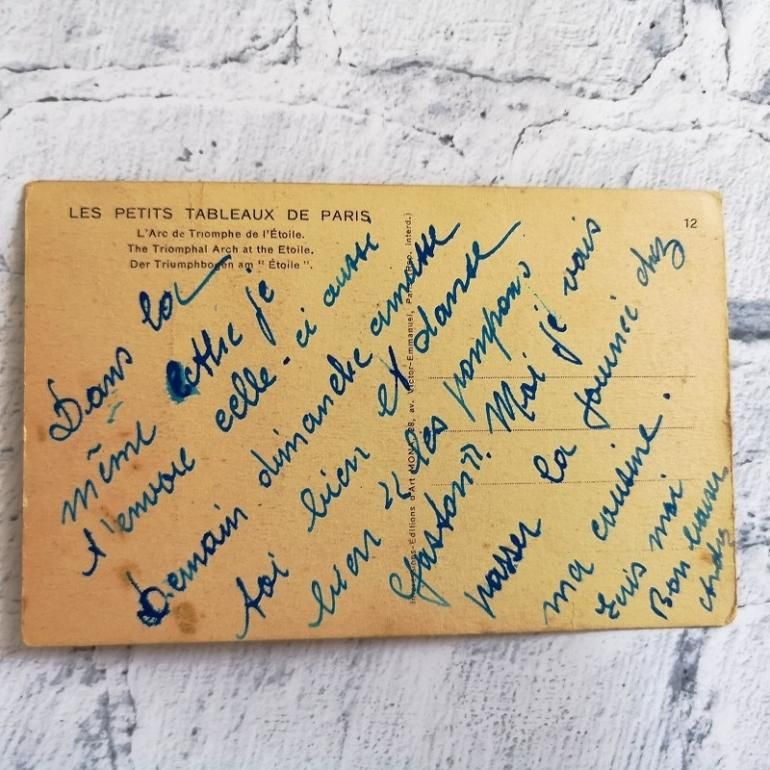 LES PETITS TABLEAUX DE PARIS
12
L'Arc de Triomphe de l'Étoile.
The Triomphal Arch at the Etoile.
Der Triumphbogen am " Étoile ".
Éditions d'Art MONA, 28, av. Victor-Emmanuel, Paris (Rep. interd.)
Dans la
même lettre je
t'envoie celle-ci aussi
Demain dimanche amuse
toi bien et danse
bien "les pompons
Gaston". Moi je vais
passer la journée chez
ma cousine.
Ecris moi
Bon baiser